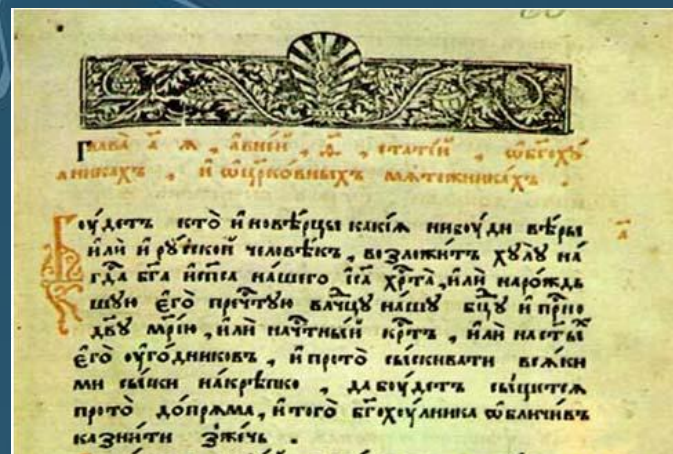 Глава а҃ ꙗ, авнеи, ѳ҃, статей, ѡбг҃охꙋ
лникахъ, и ѡцр҃ковныхъ мѧтежникахъ.
Боу́детъ кто̀ и҆новѣ́рцы какі́ѧ нибоу́ди вѣ́ры
и҆лѝ и҆рꙋ́сской человѣ́къ, возложи́тъ хꙋлꙋ̀ на́
гд҃а бг҃а и҆сп҃са на́шего і҆с҃а хр҃та̀, и҆лѝ наро́ждь
шꙋю є҆го̀ пречⷭ҇тꙋю влⷣчцꙋ на́шꙋ бц҃ꙋ и҆ при́но
дв҃ꙋ мр҃і́ю, и҆лѝ начⷭ҇тны́й крⷭ҇тъ, и҆лѝ наст҃ы́ⷯ
є҆го̀ оу҆го́дниковъ, и҆прото̀ сы́скивати всѧ́ки
ми сы́ски на́крѣпко, да боу́детъ сы́щетсѧ
прото̀ до́прѧма, и҆того̀ бг҃охоу́лника ѡ҆бличи́въ
казни́ти зже́чь.
а҃